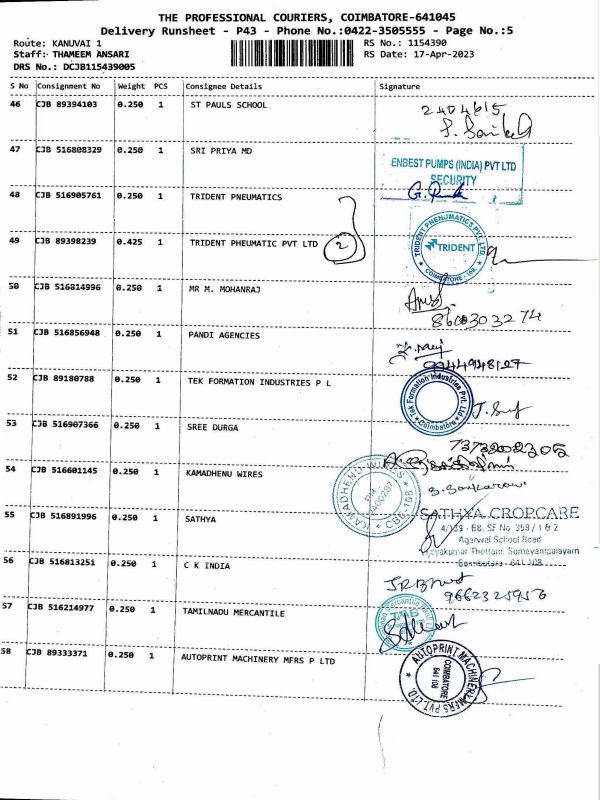 THE PROFESSIONAL COURIERS, COIMBATORE-641045
Delivery Runsheet - P43 - Phone No.:0422-3505555 - Page No.:5
Route: KANUVAI 1
RS No.: 1154390
Staff: THAMEEM ANSARI
RS Date: 17-Apr-2023
DRS No.: DCJB115439005
S No Consignment No Weight PCS Consignee Details Signature
46 CJB 89394103 0.250 1 ST PAULS SCHOOL
2404615
47 CJB 516808329 0.250 1 SRI PRIYA MD
ENBEST PUMPS (INDIA) PVT LTD
SECURITY
48 CJB 516905761 0.250 1 TRIDENT PNEUMATICS
49 CJB 89398239 0.425 1 TRIDENT PHEUMATIC PVT LTD 2
TRIDENT PNENUMATICS PVT. LTD
TRIDENT
COIMBATORE - 108
50 CJB 516814996 0.250 1 MR M. MOHANRAJ
8600303274
51 CJB 516856948 0.250 1 PANDI AGENCIES
52 CJB 89180788 0.250 1 TEK FORMATION INDUSTRIES P L
Tek Formation Industries Pvt. Ltd
Coimbatore
53 CJB 516907366 0.250 1 SREE DURGA
7373202305
54 CJB 516601145 0.250 1 KAMADHENU WIRES
KAMADHENU WIRES
CBE-108
55 CJB 516891996 0.250 1 SATHYA
SATHYA CROPCARE
Agarwal School Road
56 CJB 516813251 0.250 1 C K INDIA
9662325956
57 CJB 516214977 0.250 1 TAMILNADU MERCANTILE
58 CJB 89333371 0.250 1 AUTOPRINT MACHINERY MFRS P LTD
AUTOPRINT MACHINERY MFRS PVT. LTD.
COIMBATORE
641 108